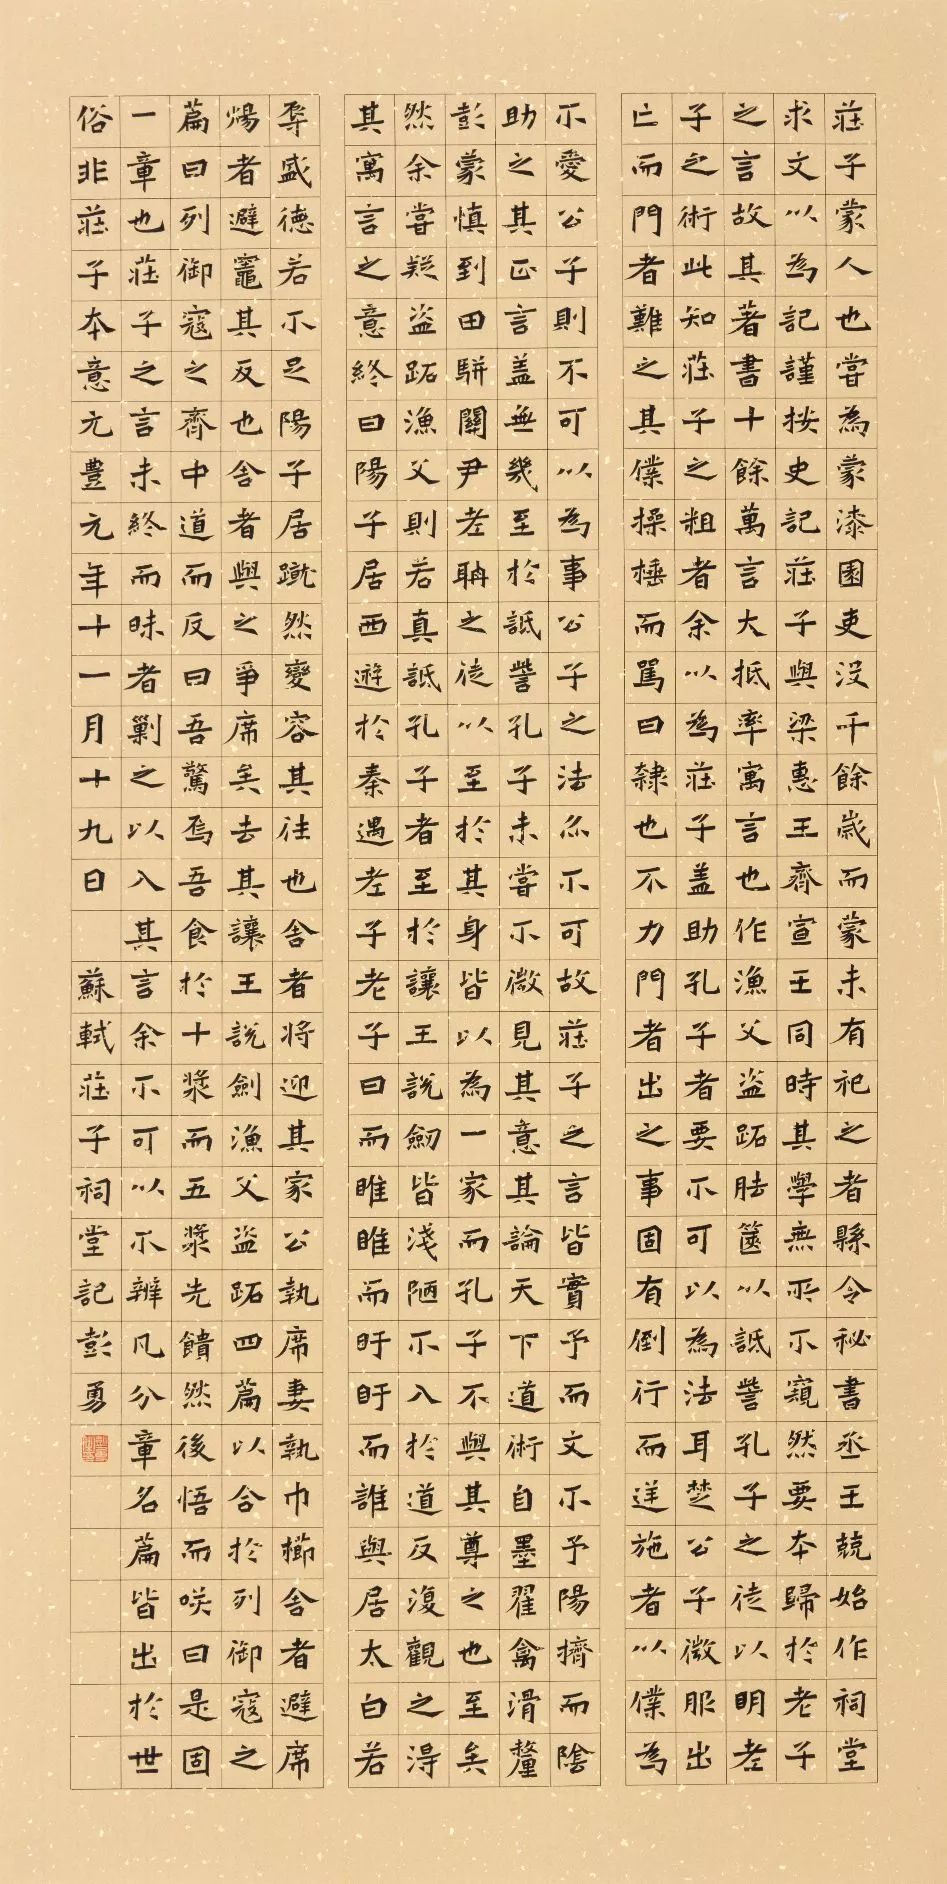 莊子蒙人也嘗為蒙漆園吏沒千餘歲而蒙未有祀之者縣令秘書丞王兢始作祠堂
求文以為記謹按史記莊子與梁惠王齊宣王同時其學無所不窺然要本歸於老子
之言故其著書十餘萬言大抵率寓言也作漁父盜跖胠篋以詆訾孔子之徒以明老
子之術此知莊子之粗者余以為莊子盖助孔子者要不可以為法耳楚公子微服出
亡而門者難之其僕操棰而罵曰隸也不力門者出之事固有倒行而逆施者以僕為
不愛公子則不可以為事公子之法亦不可故莊子之言皆實予而文不予陽擠而陰
助之其正言盖無幾至於詆訾孔子未嘗不微見其意其論天下道術自墨翟禽滑釐
彭蒙慎到田駢關尹老聃之徒以至於其身皆以為一家而孔子不與其尊之也至矣
然余嘗疑盜跖漁父則若真詆孔子者至於讓王說劒皆淺陋不入於道反復觀之得
其寓言之意終曰陽子居西遊於秦遇老子老子曰而睢睢而盱盱而誰與居太白若
辱盛德若不足陽子居蹴然變容其往也舍者將迎其家公執席妻執巾櫛舍者避席
煬者避竈其反也舍者與之爭席矣去其讓王說劍漁父盜跖四篇以合於列御寇之
篇曰列御寇之齊中道而反曰吾驚焉吾食於十漿而五漿先饋然後悟而咲曰是固
一章也莊子之言未終而昧者剿之以入其言余不可以不辨凡分章名篇皆出於世
俗非莊子本意元豊元年十一月十九日 蘇軾莊子祠堂記彭勇